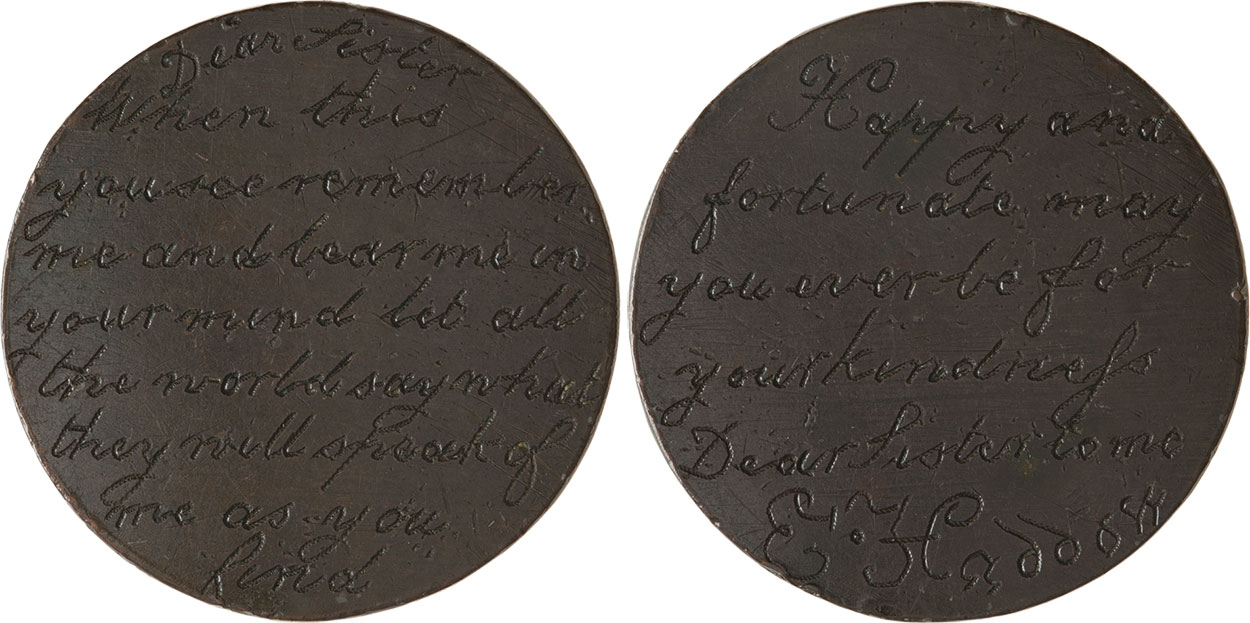 Dear Sister
When this
you see remember
me and bear me in
your mind let all
the world say what
they will speak of
me as you
find
Happy and
fortunate may
you ever be for
your kindneſs
Dear Sister to me
E. Haddock